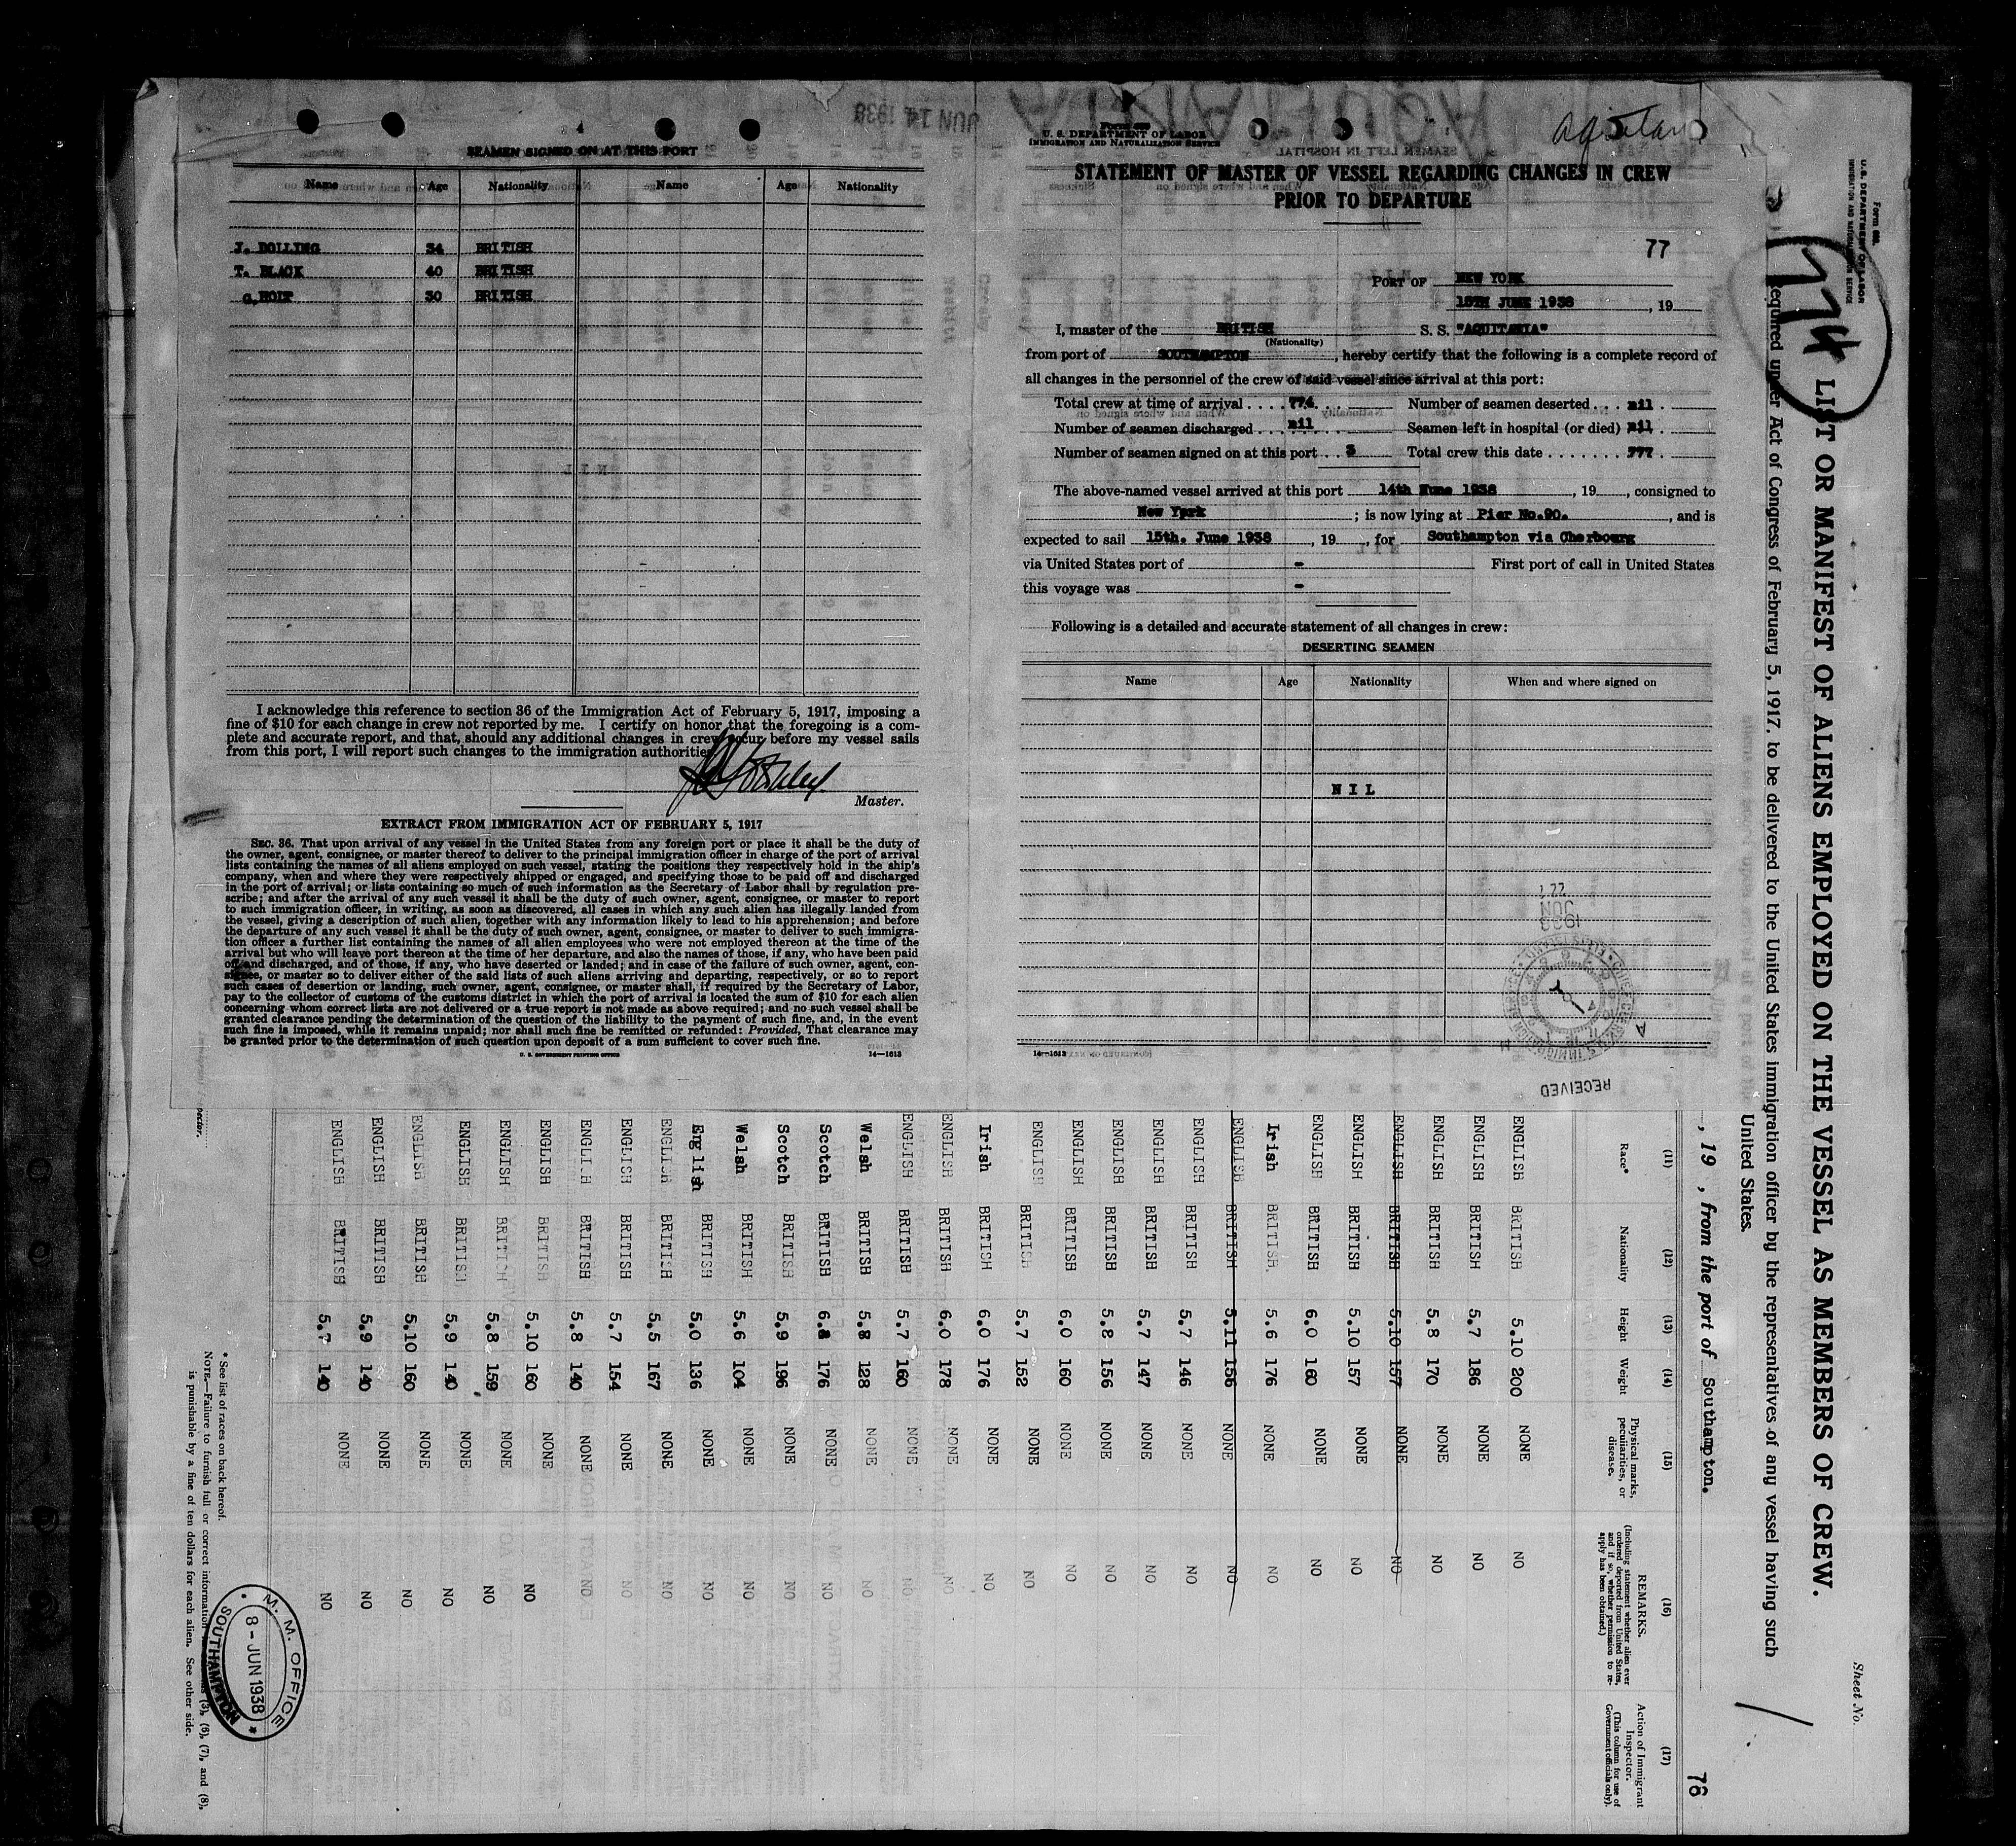 SEAMEN SIGNED ON AT THIS PORT
Name Age Nationality Name Age Nationality
J. BOLLING 34 BRITISH
T. BLACK 40 BRITISH
G. HOLT 30 BRITISH
I acknowledge this reference to section 36 of the Immigration Act of February 5, 1917, imposing a
fine of $10 for each change in crew not reported by me. I certify on honor that the foregoing is a com-
plete and accurate report, and that, should any additional changes in crew occur before my vessel sails
from this port, I will report such changes to the immigration authorities.
Master.
EXTRACT FROM IMMIGRATION ACT OF FEBRUARY 5, 1917
SEC. 36. That upon arrival of any vessel in the United States from any foreign port or place it shall be the duty of
the owner, agent, consignee, or master thereof to deliver to the principal immigration officer in charge of the port of arrival
lists containing the names of all aliens employed on such vessel, stating the positions they respectively hold in the ship's
company, when and where they were respectively shipped or engaged, and specifying those to be paid off and discharged
in the port of arrival; or lists containing so much of such information as the Secretary of Labor shall by regulation pre-
scribe; and after the arrival of any such vessel it shall be the duty of such owner, agent, consignee, or master to report
to such immigration officer, in writing, as soon as discovered, all cases in which any such alien has illegally landed from
the vessel, giving a description of such alien, together with any information likely to lead to his apprehension; and before
the departure of any such vessel it shall be the duty of such owner, agent, consignee, or master to deliver to such immigra-
tion officer a further list containing the names of all alien employees who were not employed thereon at the time of the
arrival but who will leave port thereon at the time of her departure, and also the names of those, if any, who have been paid
off and discharged, and of those, if any, who have deserted or landed; and in case of the failure of such owner, agent, con-
signee, or master so to deliver either of the said lists of such aliens arriving and departing, respectively, or so to report
such cases of desertion or landing, such owner, agent, consignee, or master shall, if required by the Secretary of Labor,
pay to the collector of customs of the customs district in which the port of arrival is located the sum of $10 for each alien
concerning whom correct lists are not delivered or a true report is not made as above required; and no such vessel shall be
granted clearance pending the determination of the question of the liability to the payment of such fine, and, in the event
such fine is imposed, while it remains unpaid; nor shall such fine be remitted or refunded: Provided, That clearance may
be granted prior to the determination of such question upon deposit of a sum sufficient to cover such fine.
U. S. GOVERNMENT PRINTING OFFICE 14—1613
JUN 14 1938
U. S. DEPARTMENT OF LABOR
IMMIGRATION AND NATURALIZATION SERVICE
STATEMENT OF MASTER OF VESSEL REGARDING CHANGES IN CREW
PRIOR TO DEPARTURE
77
PORT OF NEW YORK
15TH JUNE 1938, 19
I, master of the BRITISH S. S. "AQUITANIA"
(Nationality)
from port of SOUTHAMPTON, hereby certify that the following is a complete record of
all changes in the personnel of the crew of said vessel since arrival at this port:
Total crew at time of arrival 774 Number of seamen deserted nil
Number of seamen discharged nil Seamen left in hospital (or died) nil
Number of seamen signed on at this port 3 Total crew this date 777
The above-named vessel arrived at this port 14th June 1938, 19, consigned to
New York; is now lying at Pier No.90., and is
expected to sail 15th. June 1938, 19, for Southampton via Cherbourg
via United States port of - First port of call in United States
this voyage was -
Following is a detailed and accurate statement of all changes in crew:
DESERTING SEAMEN
Name Age Nationality When and where signed on
NIL
14—1613
RECEIVED
Form 680
U. S. DEPARTMENT OF LABOR
IMMIGRATION AND NATURALIZATION SERVICE
Sheet No.
774
LIST OR MANIFEST OF ALIENS EMPLOYED ON THE VESSEL AS MEMBERS OF CREW.
Required under Act of Congress of February 5, 1917, to be delivered to the United States immigration officer by the representatives of any vessel having such
United States.
, 19 , from the port of Southampton.
76
(11) (12) (13) (14) (15) (16) (17)
Race* Nationality Height Weight Physical marks, peculiarities, or disease. REMARKS. (Including statement whether alien ever ordered deported from United States, and if so, whether permission to re-apply has been obtained.) Action of Immigrant Inspector. (This column for use of Government officials only).
ENGLISH BRITISH 5.10 200 NONE NO
ENGLISH BRITISH 5.7 186 NONE NO
ENGLISH BRITISH 5.8 170 NONE NO
ENGLISH BRITISH 5.10 157 NONE NO
ENGLISH BRITISH 5.10 157 NONE NO
ENGLISH BRITISH 6.0 160 NONE NO
Irish BRITISH. 5.6 176 NONE NO
ENGLISH BRITISH 5.11 156 NONE NO
BRITISH 5.7 146 NONE NO
ENGLISH BRITISH 5.7 147 NONE NO
ENGLISH BRITISH 5.8 156 NONE NO
ENGLISH BRITISH 6.0 160 NONE NO
ENGLISH BRITISH 5.7 152 NONE NO
Irish BRITISH 6.0 176 NONE NO
ENGLISH BRITISH 6.0 178 NONE NO
ENGLISH BRITISH 5.7 160 NONE NO
Welsh BRITISH 5.8 128 NONE NO
Scotch BRITISH 6.2 176 NONE NO
Scotch BRITISH 5.9 196 NONE NO
Welsh BRITISH 5.6 104 NONE NO
English BRITISH 5.0 136 NONE NO
ENGLISH BRITISH 5.5 167 NONE NO
ENGLISH BRITISH 5.7 154 NONE NO
ENGLISH BRITISH 5.8 140 NONE NO
ENGLISH BRITISH 5.10 160 NONE NO
ENGLISH BRITISH 5.8 159 NONE NO
ENGLISH BRITISH 5.9 140 NONE NO
ENGLISH BRITISH 5.10 160 NONE NO
ENGLISH BRITISH 5.9 140 NONE NO
ENGLISH BRITISH 5.7 140 NONE NO
* See list of races on back hereof.
NOTE.—Failure to furnish full or correct information (3), (6), (7), and (8),
is punishable by a fine of ten dollars for each alien. See other side.
M. M. OFFICE
8 - JUN 1938
SOUTHAMPTON